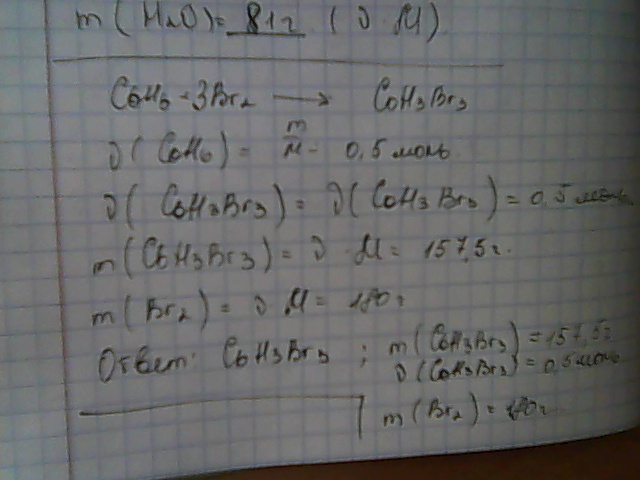 m(H₂O)= 81г (ν·M)
C₆H₆ + 3Br₂ ⟶ C₆H₃Br₃
ν(C₆H₆) = m/M = 0,5 моль
ν(C₆H₃Br₃) = ν(C₆H₃Br₃) = 0,5 моль
m(C₆H₃Br₃) = ν·M = 157,5г.
m(Br₂) = ν M =
Ответ: C₆H₃Br₃ ; m(C₆H₃Br₃) = 157,5г
ν(C₆H₃Br₃) = 0,5 моль
m(Br₂) =